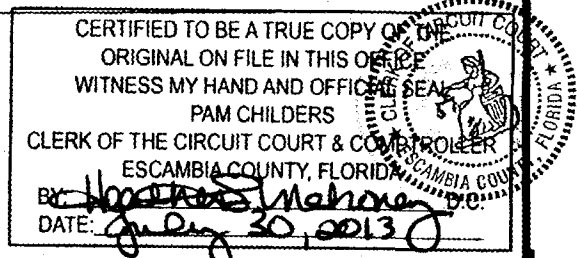 CERTIFIED TO BE A TRUE COPY OF THE
ORIGINAL ON FILE IN THIS OFFICE
WITNESS MY HAND AND OFFICIAL SEAL
PAM CHILDERS
CLERK OF THE CIRCUIT COURT & COMPTROLLER
ESCAMBIA COUNTY, FLORIDA
BY: Mahoney D.C.
DATE: July 30, 2013
CLERK OF CIRCUIT COURT
★ ESCAMBIA COUNTY, FLORIDA ★